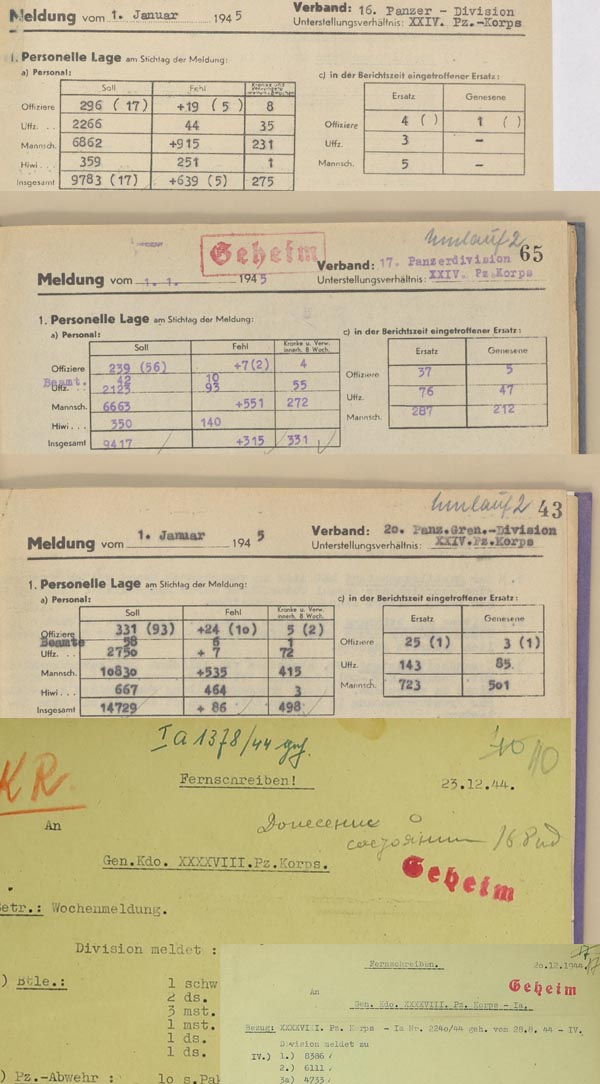 Meldung vom 1. Januar 1945
Verband: 16. Panzer - Division
Unterstellungsverhältnis: XXIV. Pz.-Korps
1. Personelle Lage am Stichtag der Meldung:
a) Personal:
c) in der Berichtszeit eingetroffener Ersatz:
Soll Fehl
Ersatz Genesene
Offiziere 296 ( 17) +19 ( 5 ) 8
Offiziere 4 ( ) 1 ( )
Uffz. . . 2266 44 35
Uffz. 3 –
Mannsch. 6862 +915 231
Mannsch. 5 –
Hiwi . . . 359 251 1
Insgesamt 9783 (17) +639 (5) 275
Umlauf 2
Geheim
65
Meldung vom 1. 1. 1945
Verband: 17. Panzerdivision
Unterstellungsverhältnis: XXIV. Pz.Korps
1. Personelle Lage am Stichtag der Meldung:
a) Personal:
c) in der Berichtszeit eingetroffener Ersatz:
Soll Fehl Kranke u. Verw. innerh. 8 Woch.
Ersatz Genesene
Offiziere 239 (56) +7(2) 4
Offiziere 37 5
Beamt. 42 10
Uffz. . . 2123 93 55
Uffz. 76 47
Mannsch. 6663 +551 272
Mannsch. 287 212
Hiwi . . . 350 140
Insgesamt 9417 +315 331
Umlauf 2 43
Meldung vom 1. Januar 1945
Verband: 20. Panz.Gren.-Division
Unterstellungsverhältnis: XXIV.Pz.Korps
1. Personelle Lage am Stichtag der Meldung:
a) Personal:
c) in der Berichtszeit eingetroffener Ersatz:
Soll Fehl Kranke u. Verw. innerh. 8 Woch.
Ersatz Genesene
Offiziere 331 (93) +24 (10) 5 (2)
Offiziere 25 (1) 3 (1)
Beamte 58 6 1
Uffz. . . 2750 + 7 72
Uffz. 143 85
Mannsch. 10830 +535 415
Mannsch. 723 501
Hiwi . . . 667 464 3
Insgesamt 14729 + 86 498
Ia 1378/44 geh.
KR.
Fernschreiben!
23.12.44.
An
Донесение о
состоянии 168 пд
Gen.Kdo. XXXXVIII.Pz.Korps.
Geheim
Betr.: Wochenmeldung.
Division meldet :
) Btle.: 1 schw
2 ds.
3 mst.
1 mst.
1 ds.
1 ds.
) Pz.-Abwehr : 10 s.Pak
Fernschreiben. 20.12.1944.
Geheim
An
Gen. Kdo. XXXXVIII. Pz. Korps - Ia.
Bezug: XXXXVIII. Pz. Korps - Ia Nr. 2240/44 geh. vom 28.8. 44 - IV.
Division meldet zu
IV.) 1.) 8386
2.) 6111
3a) 4733